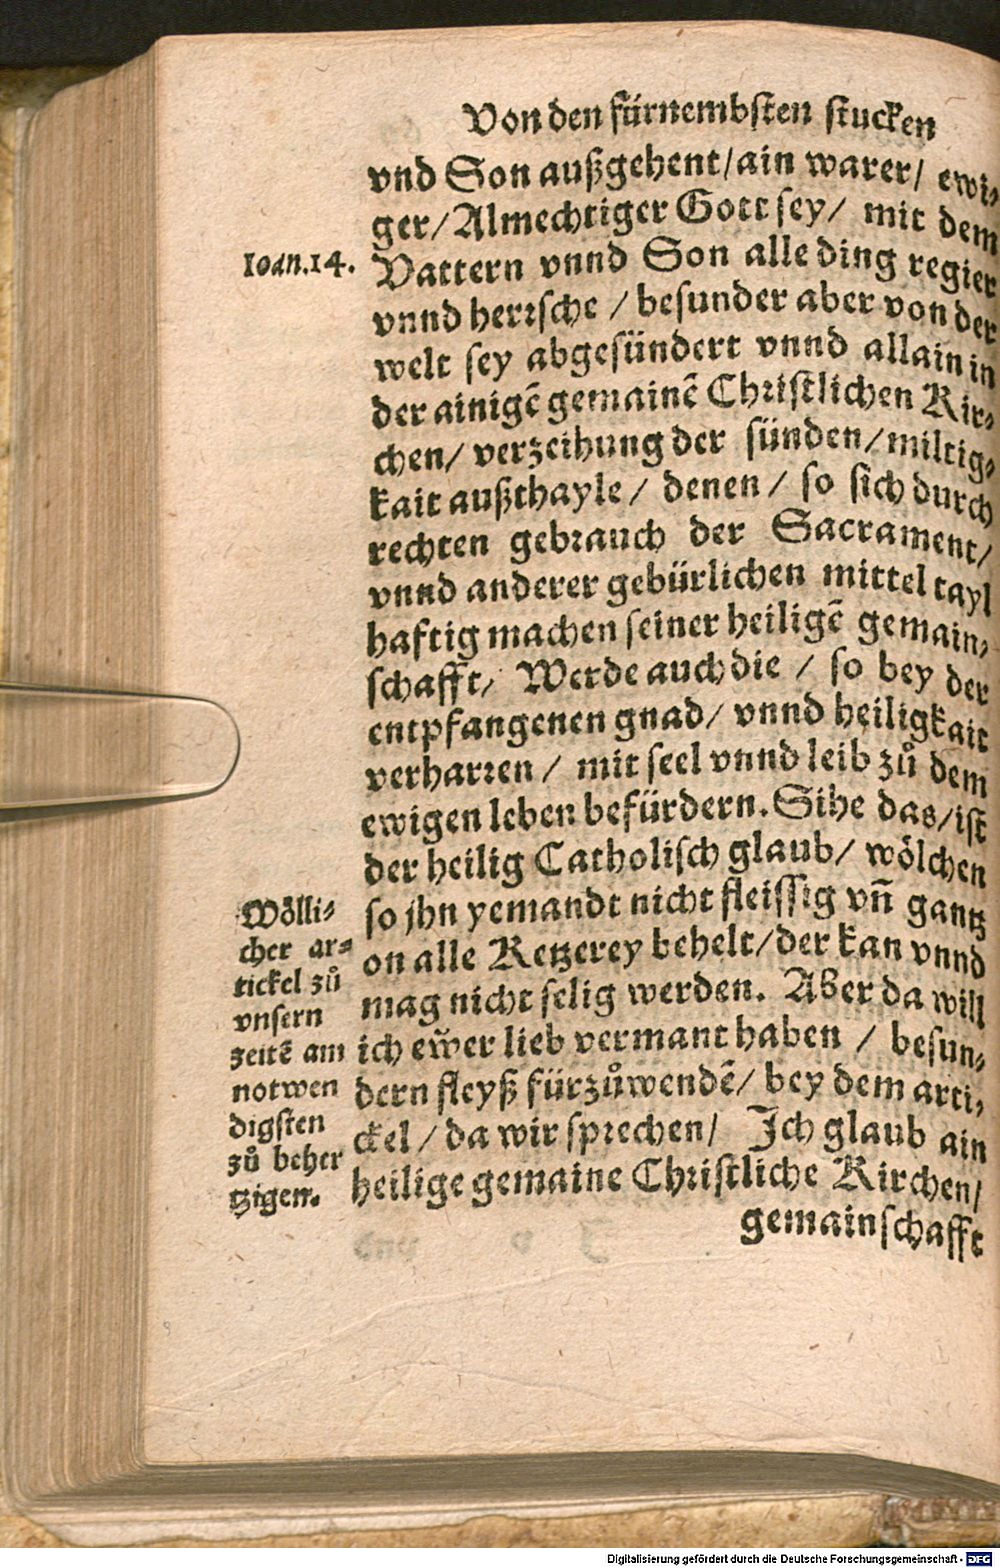 Von den fürnembsten stucken
vnd Son außgehent/ain warer/ ewi⸗
ger/Almechtiger Gott sey/ mit dem
Ioan.14.
Vattern vnnd Son alle ding regier
vnnd herꝛsche / besunder aber von der
welt sey abgesündert vnnd allain in
der ainigẽ gemainẽ Chꝛistlichen Kir⸗
chen/ verzeihung der sünden/miltig⸗
kait außthayle/ denen/ so sich durch
rechten gebꝛauch der Sacrament/
vnnd anderer gebürlichen mittel tayl
haftig machen seiner heiligẽ gemain⸗
schafft/ Werde auch die / so bey der
entpfangenen gnad/ vnnd heiligkait
verharꝛen / mit seel vnnd leib zů dem
ewigen leben befürdern. Sihe das/ist
der heilig Catholisch glaub/ wölchen
so jhn yemandt nicht fleissig vñ gantz
on alle Ketzerey behelt/der kan vnnd
mag nicht selig werden. Aber da will
ich ew̃er lieb vermant haben / besun⸗
dern fleyß fürzůwendẽ/ bey dem arti⸗
ckel/da wir spꝛechen/ Ich glaub ain
heilige gemaine Chꝛistliche Kirchen/
gemainschafft
Wölli⸗
cher ar⸗
tickel zů
vnsern
zeitẽ am
notwen
digsten
zů beher
tzigen.
Digitalisierung gefördert durch die Deutsche Forschungsgemeinschaft - DFG